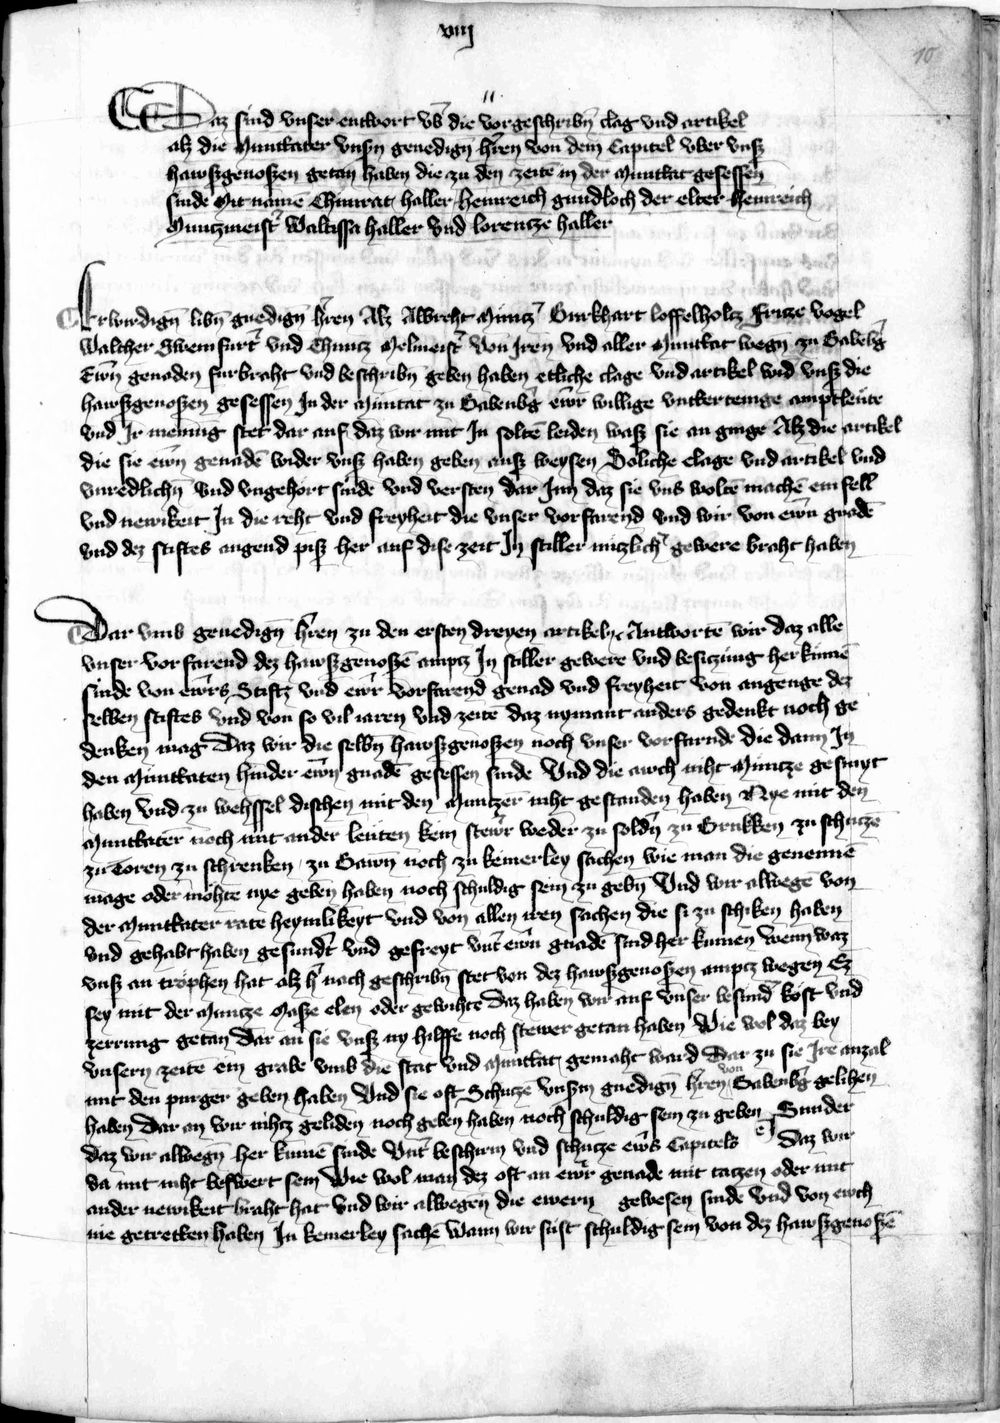 viij
10
Daz sind vnser entwort vb̄ die vorgeschribn̄ clag vnd artikel
alz die Muntater vnsn̄ genedign̄ hr̄en von dem Capitel vber vnsz
hawszgenoszen getan haben die zu den zeite in der Muntat gesessen
sinde Mit name Chunrat haller heinreich gundloch der elter heinreich
Muntzmeist̄ Waltissa haller vnd lorentze haller
Erwirdign̄ libn̄ gnedign̄ hr̄en Alz Albreht Müntz̄ Burkhart loffelholtz Fritze vogel
Walther Sweinfurt̄ vnd Chuntz Melmeist̄ Von Jren vnd aller Muntat wegn̄ zu Babēbḡ
Ewn̄ genaden furbraht vnd beschribn̄ geben haben etliche clage vnd artikel wid̄ vnsz die
hawszgenoszen gesessen Jn der Müntat zu Babenbḡ ewr̄ willige vntertenige amptleüte
vnd Jr menung stet dar auf daz wir mit Jn solte leiden wasz sie an ginge Alz die artikel
die sie ewn̄ genade wider vnsz haben geben ausz weysen Soliche clage vnd artikel vnd
vnredlichn̄ vnd vngehort sinde vnd versten dar Jnn daz sie vns wolte mache ein fell
vnd newikeit Jn die reht vnd freyheit die vnser vorfarend vnd wir von ewn̄ gnade
vnd dez stiftes angend pisz her auf dise zeit Jn stiller nützlich̄ gewere braht haben
Dar vmb genedign̄ hr̄en zu den ersten dreyen artikeln Antworte wir daz alle
vnser vorfarend dez hawszgenosze amptz Jn stiller gewere vnd besitzung her kume
sinde von ewr̄s Stiftz vnd ewr̄ vorfarend genad vnd freyheit von angenge dez
selben stiftes vnd von so vil iaren vnd zeite daz nymant anders gedenkt noch ge
denken mag Daz wir die selbn̄ hawszgenoszen noch vnser vorfarnde die dann Jn
den Müntaten hinder ewn̄ gnade gesessen sinde Vnd die auch niht Müntze gesmyt
haben vnd zu wehssel dischen mit den Muntzer niht gestanden haben Nye mit den
Muntater noch mit ander leüten kein stewr̄ weder zu soldn̄ zu Brukken zu schutze
zu Toren zu schrenken zu Bawn̄ noch zu keinerley sachen wie man die genenne
mage oder möhte nye geben haben noch schuldig sein zu gebn̄ Vnd wir alwege von
der Muntater rate heymlikeyt vnd von allen iren sachen die si zu schiken haben
vnd gehabt haben gesundt̄ vnd gefreyt vnt̄ ewn̄ gnade sind her kumen Wenn waz
vnsz an tröphen hat alz h̄ nach geschribn̄ stet von dez hawszgenoszen amptz wegen Ez
sey mit der Muntze Masze elen oder gewihte Daz haben wir auf vnser besund̄ kost vnd
zerrung getan Dar an sie vnsz ny hilffe noch stewer getan haben Wie wol daz bey
vnsern zeite ein grabe vmb die stat vnd Muntat gemaht ward Dar zu sie Jre anzal
mit den purger geben haben Vnd sie oft Schutze vnszn gnedign̄ hr̄en von Babenbḡ gelihen
haben Dar an wir nihtz geliden noch geben haben noch schuldig sein zu geben Sunder
daz wir alwegn̄ her kume sinde Vnt̄ beschirm vnd schutze ewr̄s Capitels Daz wir
da mit niht beswert sein Wie wol man dez oft an ewr̄ genade mit tatzen oder mit
ander newikeit braht hat vnd wir alwegen die ewern gewesen sinde vnd von ewch
nie getretten haben Jn keinerley sache Wann wir sust schuldig sein von dez hawszgenosze